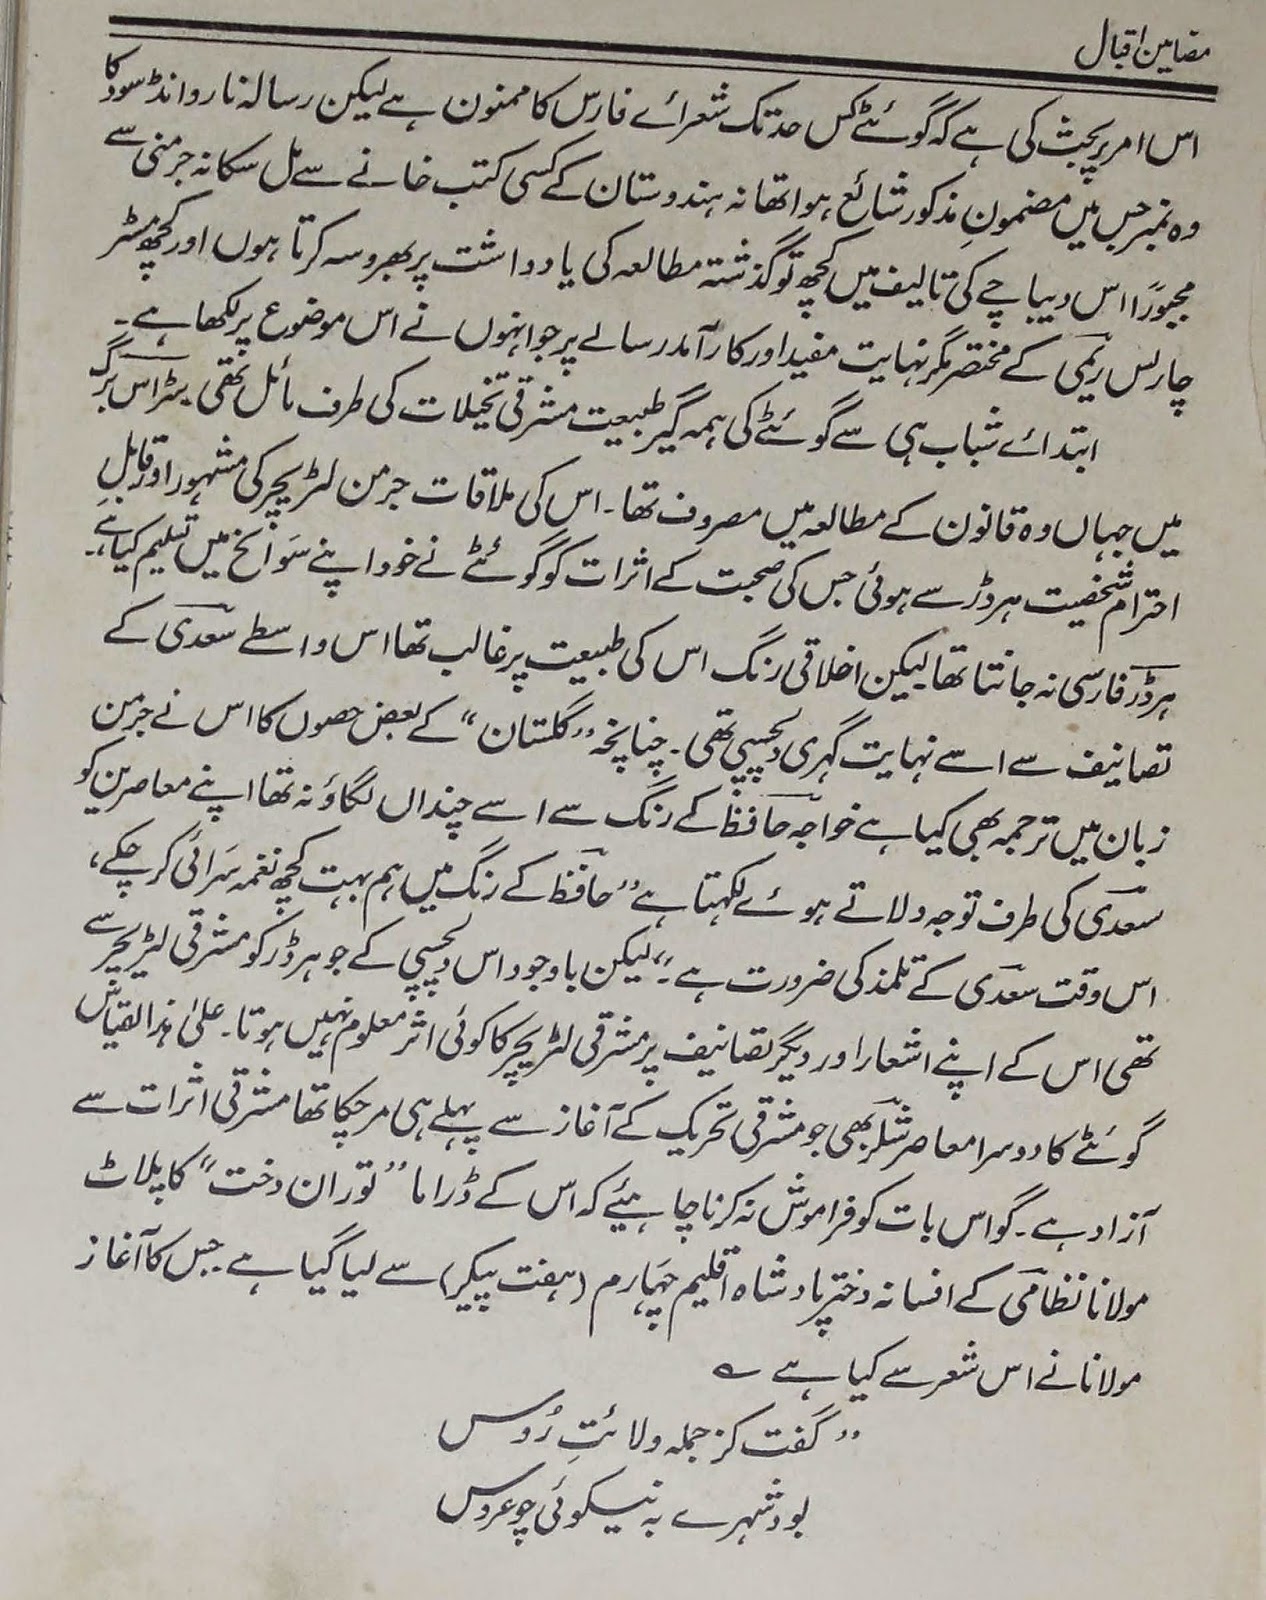 مضامین اقبال
اس امر پر بحث کی ہے کہ گوئٹے کس حد تک شعرائے فارس کا ممنون ہے لیکن رسالہ نارو انڈ سود کا
وہ نمبر جس میں مضمونِ مذکور شائع ہوا تھا نہ ہندوستان کے کسی کتب خانے سے مل سکا نہ جرمنی سے
مجبوراً اس دیباچے کی تالیف میں کچھ تو گذشتہ مطالعہ کی یادداشت پر بھروسہ کرتا ہوں اور کچھ مسٹر
چارلس ریمی کے مختصر مگر نہایت مفید اور کارآمد رسالے پر جو انہوں نے اس موضوع پر لکھا ہے۔
ابتدائے شباب ہی سے گوئٹے کی ہمہ گیر طبیعت مشرقی تخیلات کی طرف مائل تھی سٹراس برگ
میں جہاں وہ قانون کے مطالعہ میں مصروف تھا۔ اس کی ملاقات جرمن لٹریچر کی مشہور اور قابلِ
احترام شخصیت ہرڈر سے ہوئی جس کی صحبت کے اثرات کو گوئٹے نے خود اپنے سَوانح میں تسلیم کیا ہے۔
ہرڈر فارسی نہ جانتا تھا لیکن اخلاقی رنگ اس کی طبیعت پر غالب تھا اس واسطے سعدی کے
تصانیف سے اسے نہایت گہری دلچسپی تھی۔ چنانچہ ”گلستان“ کے بعض حصوں کا اس نے جرمن
زبان میں ترجمہ بھی کیا ہے خواجہ حافظ کے رنگ سے اسے چنداں لگاؤ نہ تھا اپنے معاصرین کو
سعدی کی طرف توجہ دلاتے ہوئے لکھتا ہے ”حافظ کے رنگ میں ہم بہت کچھ نغمہ سَرائی کر چکے،
اس وقت سعدی کے تلمذ کی ضرورت ہے۔“ لیکن باوجود اس دلچسپی کے جو ہرڈر کو مشرقی لٹریچر سے
تھی اس کے اپنے اشعار اور دیگر تصانیف پر مشرقی لٹریچر کا کوئی اثر معلوم نہیں ہوتا۔ علیٰ ہٰذا القیاس
گوئٹے کا دوسرا معاصر شلر بھی جو مشرقی تحریک کے آغاز سے پہلے ہی مر چکا تھا مشرقی اثرات سے
آزاد ہے۔ گو اس بات کو فراموش نہ کرنا چاہیئے کہ اس کے ڈراما ”توران دخت“ کا پلاٹ
مولانا نظامی کے افسانہ دختر پادشاہ اقلیم چہارم (ہفت پیکر) سے لیا گیا ہے جس کا آغاز
مولانا نے اس شعر سے کیا ہے ؎
”گفت کز جملہ ولائتِ رُوس
بود شہرے بہ نیکوئی چو عروس